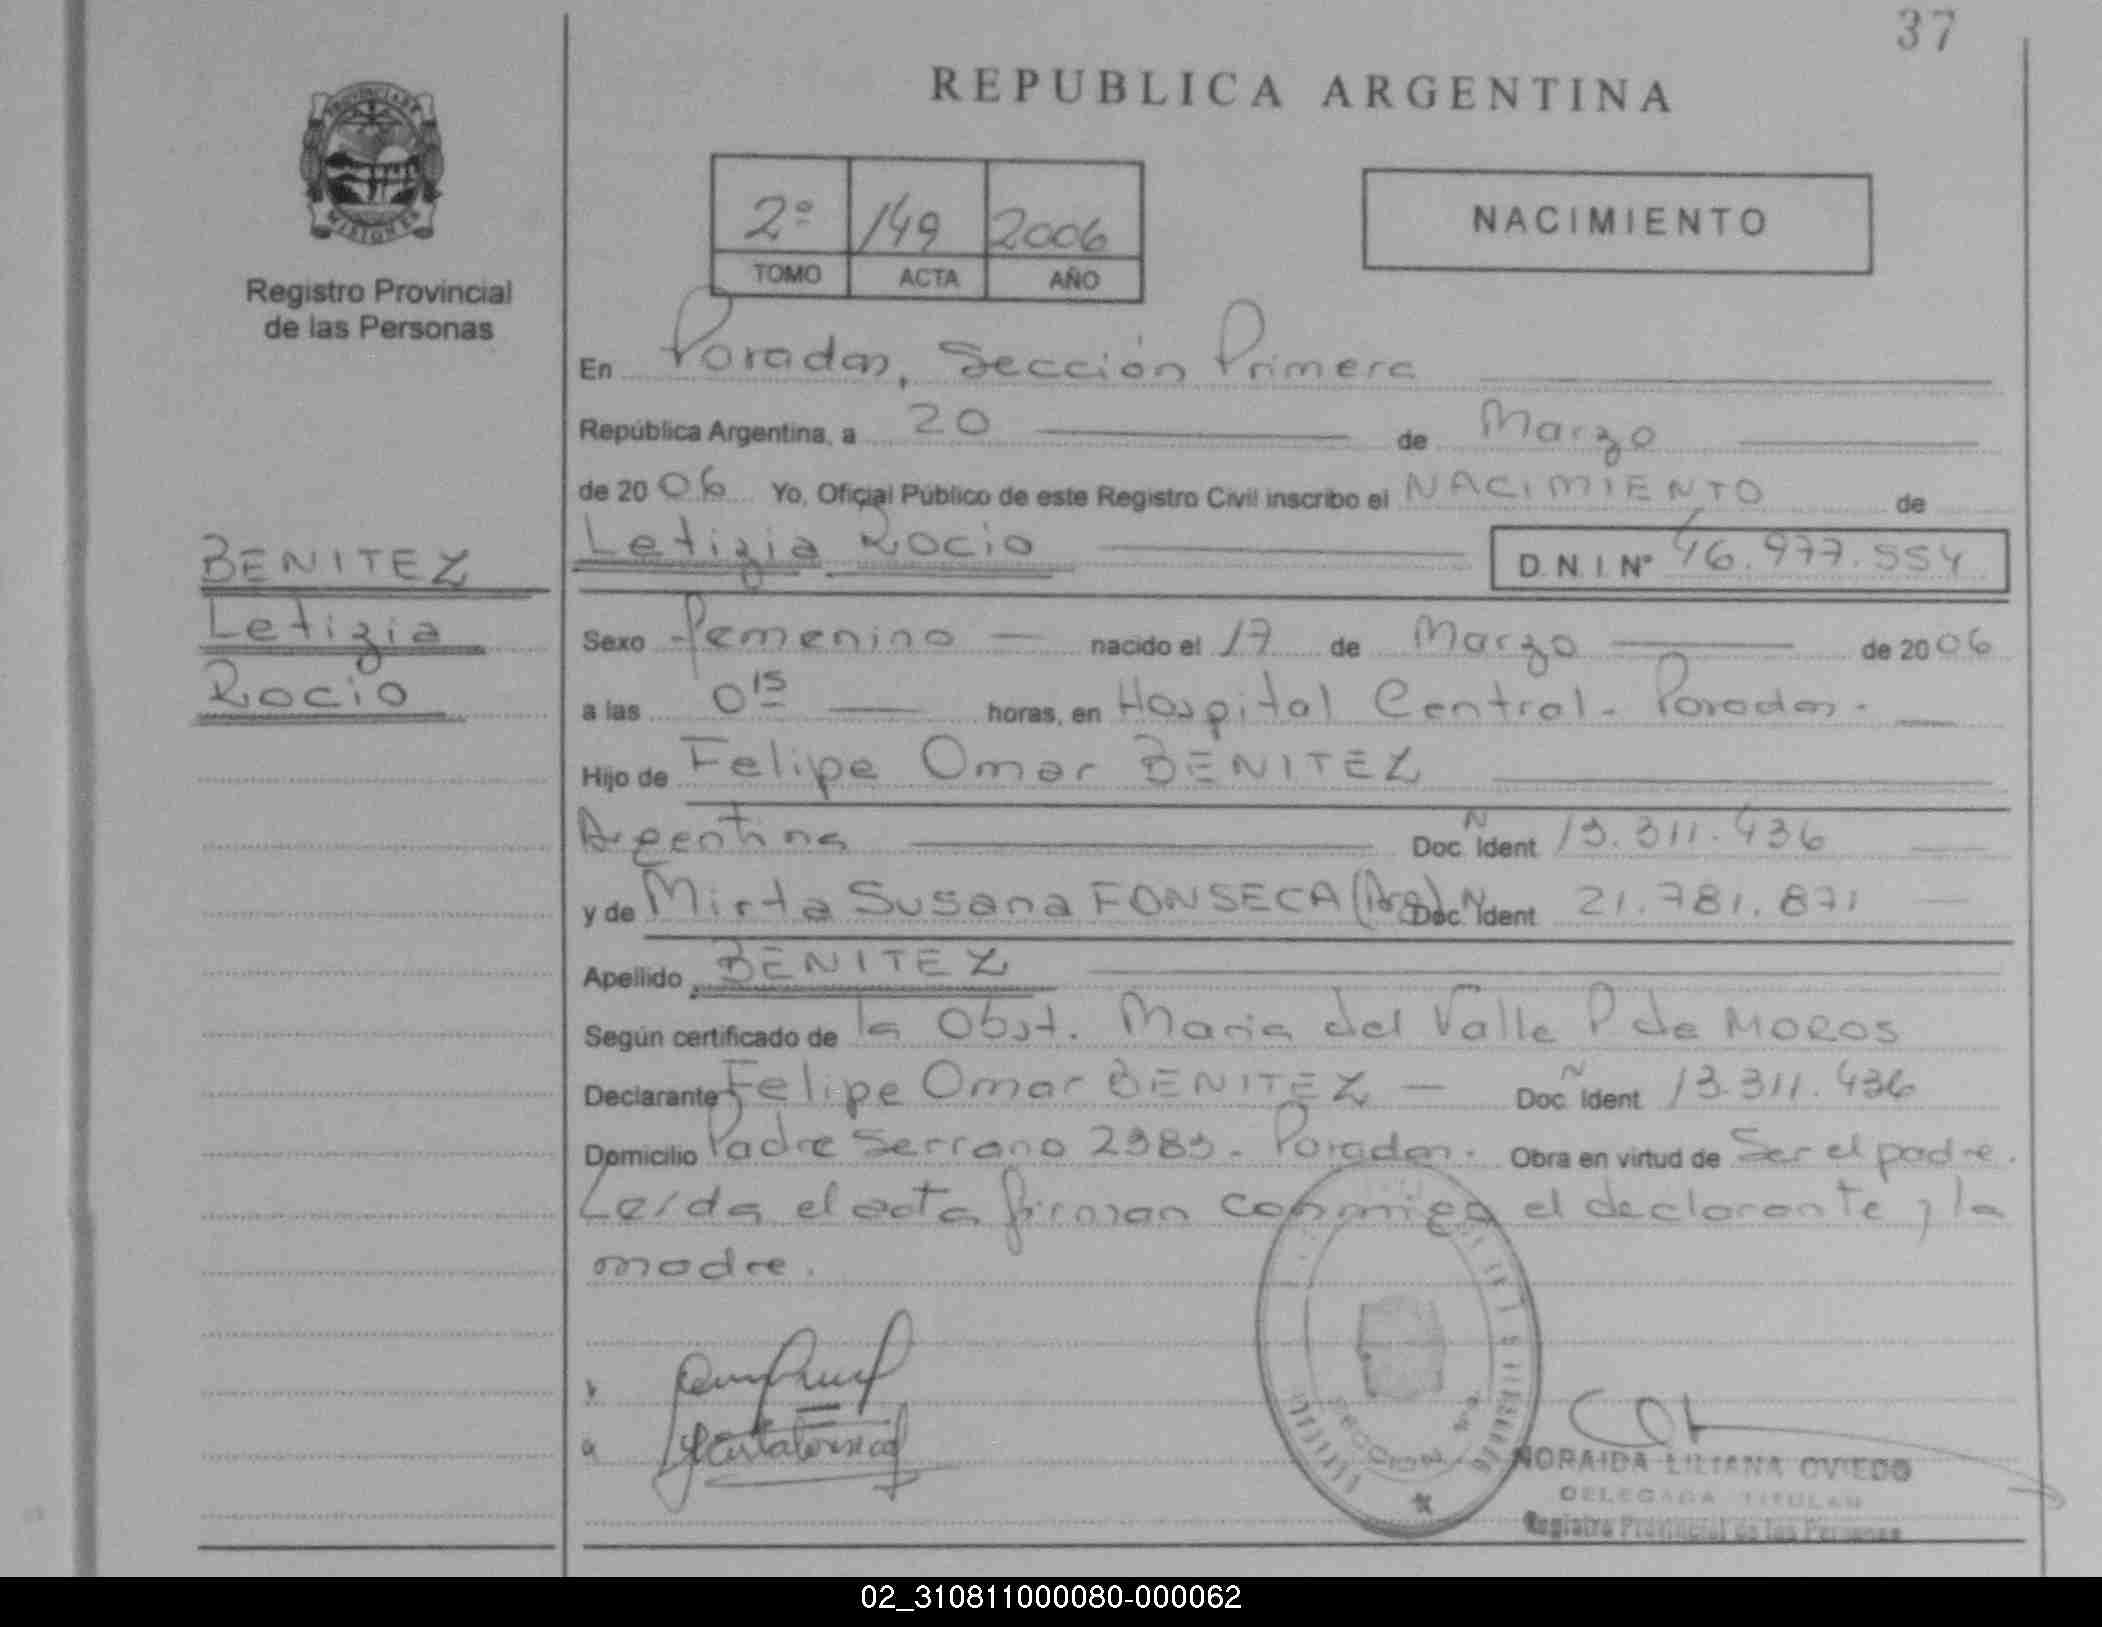 37
REPUBLICA ARGENTINA
PROVINCIA DE
MISIONES
Registro Provincial
de las Personas
2º 149 2006
TOMO ACTA AÑO
NACIMIENTO
En Posadas, Sección Primera
República Argentina, a 20 de Marzo
de 2006 Yo, Oficial Público de este Registro Civil inscribo el NACIMIENTO de
BENITEZ
Letizia
Rocio
Letizia Rocio D.N.I. Nº 46.977.554
Sexo Femenino nacido el 17 de Marzo de 2006
a las 0 15 horas, en Hospital Central - Posadas.
Hijo de Felipe Omar BENITEZ
Argentina Doc. N Ident 13.311.436
y de Mirta Susana FONSECA (Arg) Doc. N Ident 21.781.871
Apellido BENITEZ
Según certificado de la Obst. Maria del Valle P de MOROS
Declarante Felipe Omar BENITEZ Doc. N Ident 13.311.436
Domicilio Padre Serrano 2383 - Posadas. Obra en virtud de Ser el padre.
Leída el acta firman conmigo el declarante y la
madre.
SECCION 1ra
NORAIDA LILIANA OVIEDO
DELEGADA TITULAR
Registro Provincial de las Personas
02_310811000080-000062